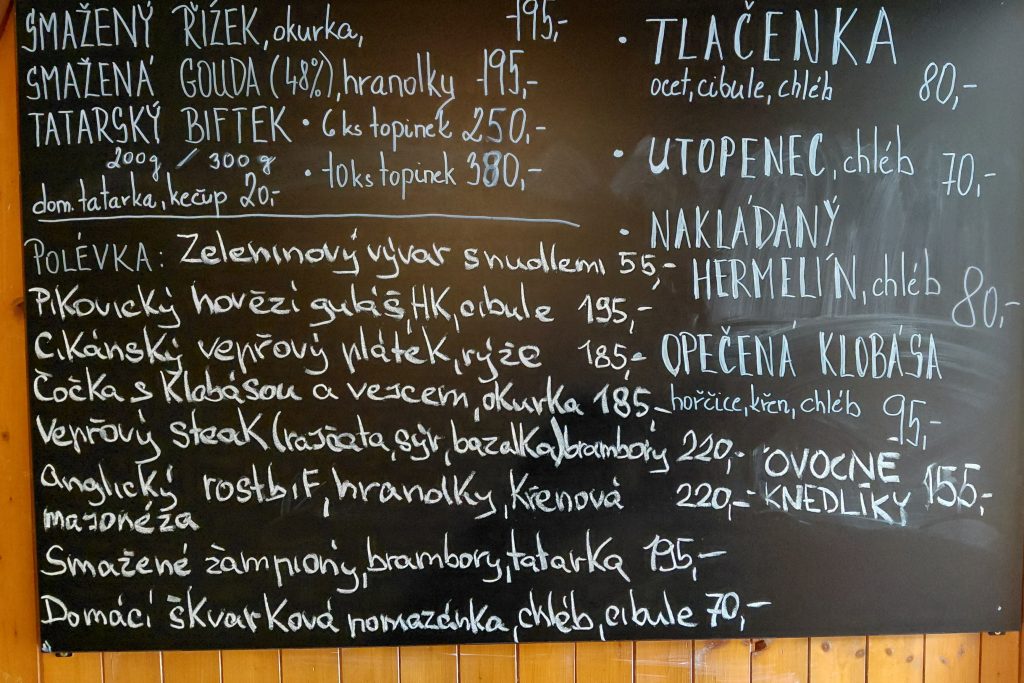 SMAŽENÝ ŘÍZEK, okurka, -195,-
SMAŽENÁ GOUDA (48%), hranolky -195,-
TATARSKÝ BIFTEK • 6 ks topinek 250,-
200g / 300 g • 10 ks topinek 380,-
dom. tatarka, kečup 20,-
POLÉVKA: Zeleninový vývar s nudlemi 55,-
Pikovický hovězí guláš, HK, cibule 195,-
Cikánský vepřový plátek, rýže 185,-
Čočka s klobásou a vejcem, okurka 185,-
Vepřový steak (rajčata, sýr, bazalka) brambory 220,-
Anglický rostbif, hranolky, křenová 220,-
majonéza
Smažené žampiony, brambory, tatarka 195,-
Domácí škvarková pomazánka, chléb, cibule 70,-
• TLAČENKA
ocet, cibule, chléb 80,-
• UTOPENEC, chléb 70,-
• NAKLÁDANÝ
HERMELÍN, chléb 80,-
OPEČENÁ KLOBÁSA
hořčice, křen, chléb 95,-
OVOCNÉ
KNEDLÍKY 155,-